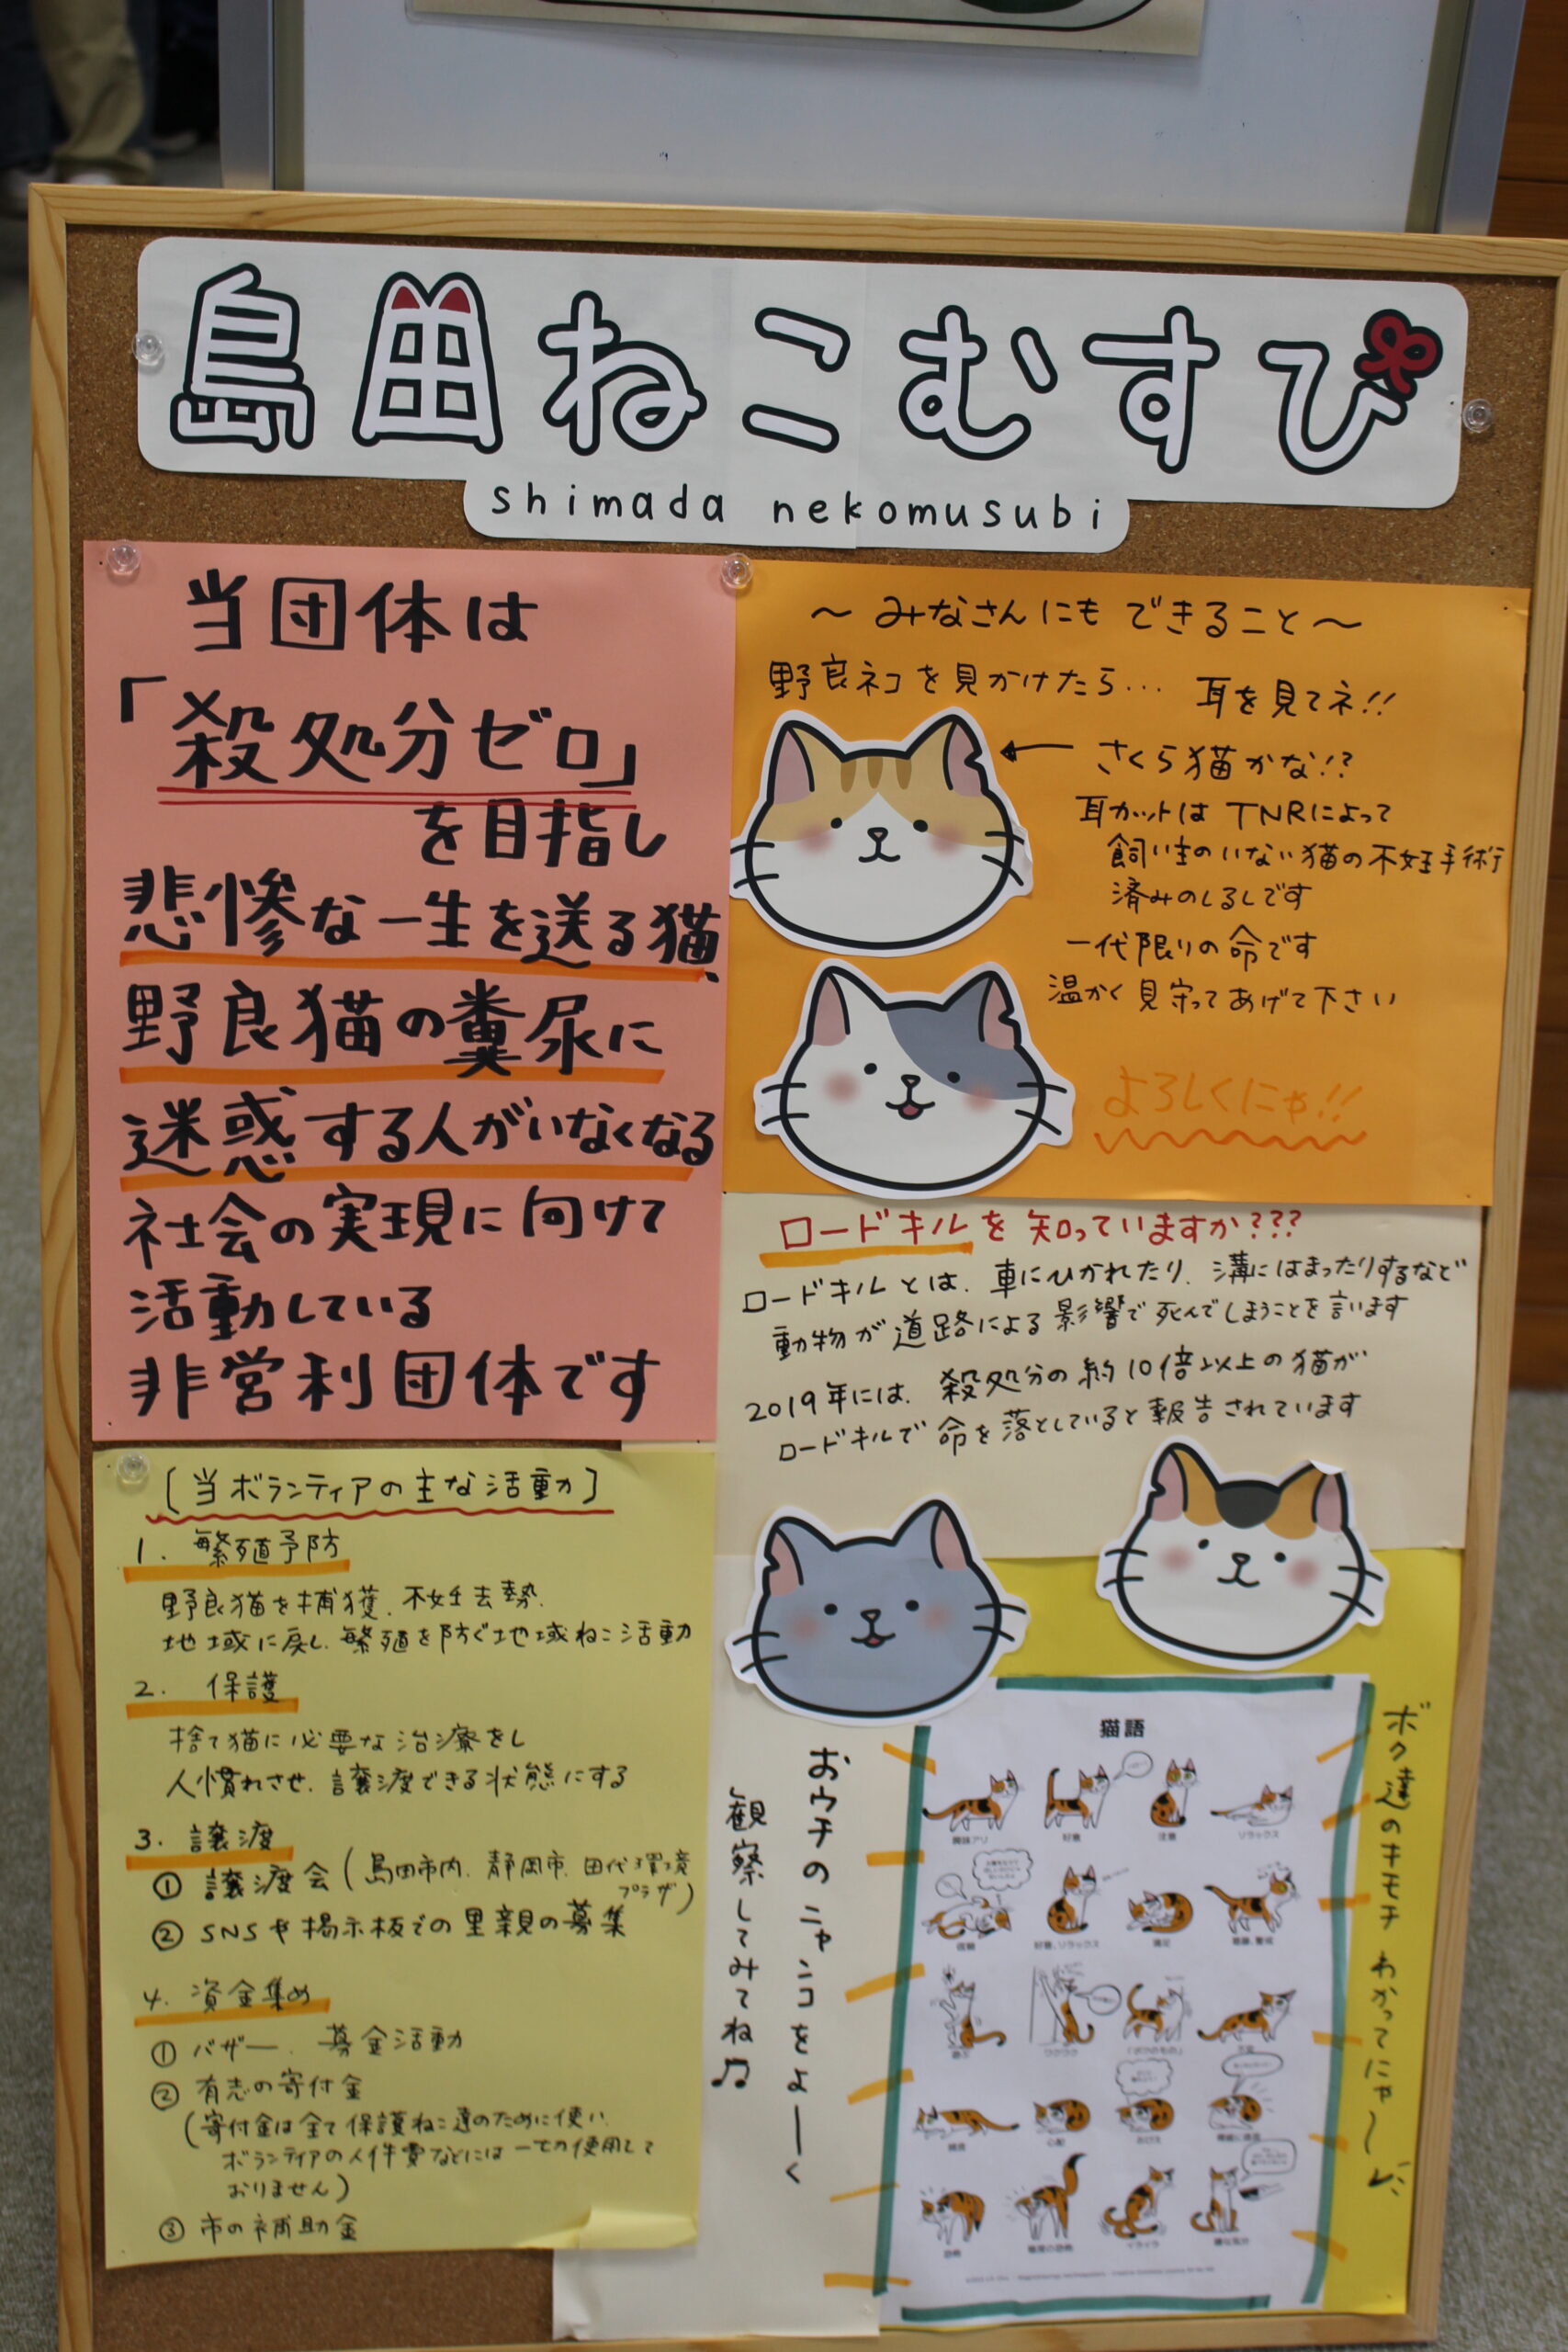 島田ねこむすび
shimada nekomusubi
当団体は
「殺処分ゼロ」
を目指し
悲惨な一生を送る猫、
野良猫の糞尿に
迷惑する人がいなくなる
社会の実現に向けて
活動している
非営利団体です
〜みなさんにもできること〜
野良ネコを見かけたら... 耳を見てネ!!
さくら猫かな!?
耳カットはTNRによって
飼い主のいない猫の不妊手術
済みのしるしです
一代限りの命です
温かく見守ってあげて下さい
よろしくにゃ!!
ロードキルを知っていますか???
ロードキルとは、車にひかれたり、溝にはまったりするなど
動物が道路による影響で死んでしまうことを言います
2019年には、殺処分の約10倍以上の猫が
ロードキルで命を落としていると報告されています
[当ボランティアの主な活動]
1. 繁殖予防
野良猫を捕獲、不妊去勢、
地域に戻し、繁殖を防ぐ地域ねこ活動
2. 保護
捨て猫に必要な治療をし
人慣れさせ、譲渡できる状態にする
3. 譲渡
① 譲渡会(島田市内、静岡市、田代環境
プラザ)
② SNSや掲示板での里親の募集
4. 資金集め
① バザー、募金活動
② 有志の寄付金
(寄付金は全て保護ねこ達のために使い、
ボランティアの人件費などには一切使用して
おりません)
③ 市の補助金
おウチのニャンコをよーく
観察してみてね♫
猫語
興味アリ 好意 注意 リラックス
信頼 好意、リラックス 満足
遊ぶ ワクワク 「ボクのもの」
心配
恐怖 イライラ
ボク達のキモチ わかってにゃ〜